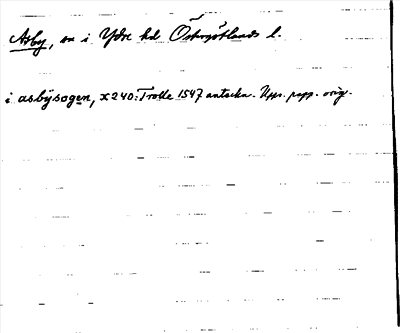 Asby, sn i Ydre hd Östergötlands l.
i asbysogen, X240: Trolle 1547 anteckn. Upps. papp. orig.